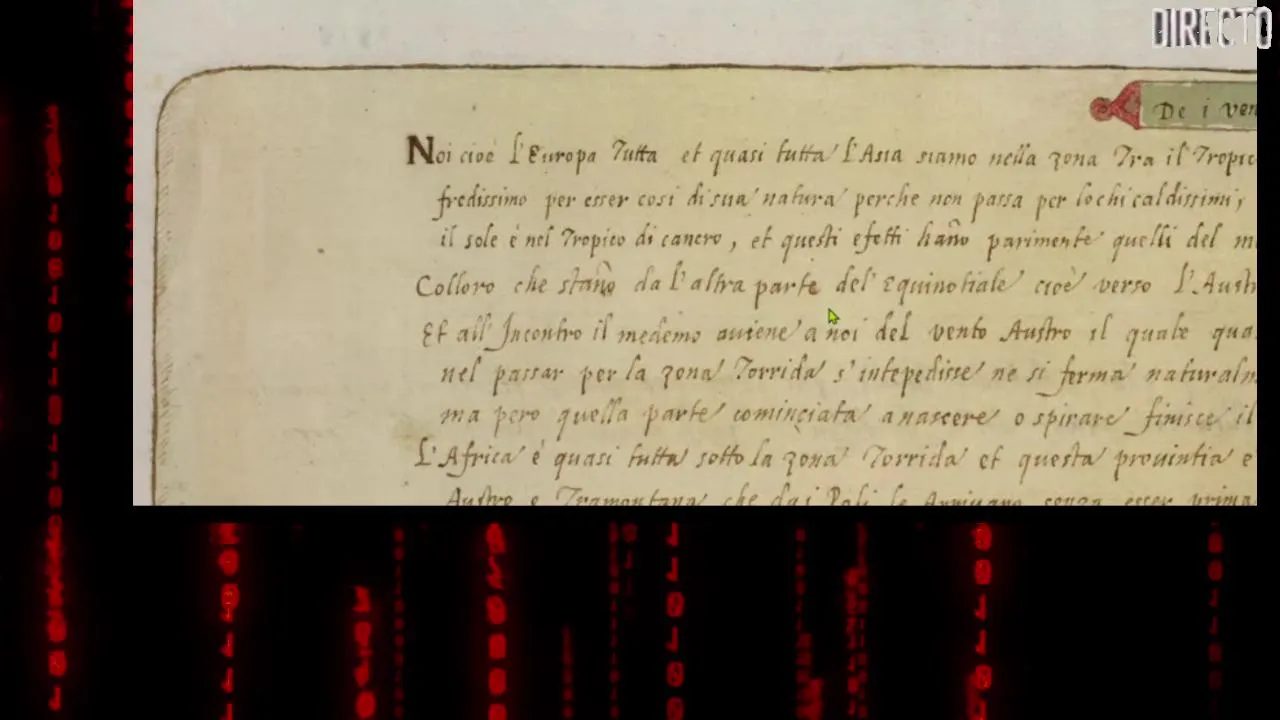 DIRECTO
De i ven
Noi cioè L'Europa Tutta et quasi tutta L'Asia siamo nella zona Tra il Tropic
fredissimo per esser cosi di sua natura perche non passa per lochi caldissimi,
il sole è nel Tropico di cancro, et questi efetti hano parimente quelli del m
Colloro che stano da L'altra parte del' Equinotiale cioè verso L'Austr
Et all' Incontro il medemo auiene a noi del vento Austro il quale qua
nel passar per la zona Torrida s'intepedisse ne si ferma naturalm
ma pero quella parte cominciata a nascere o spirare finisce il
L'Africa è quasi tutta sotto la zona Torrida et questa prouintia e
Austro e Tramontana che dai Poli le Arriuano senza esser prima